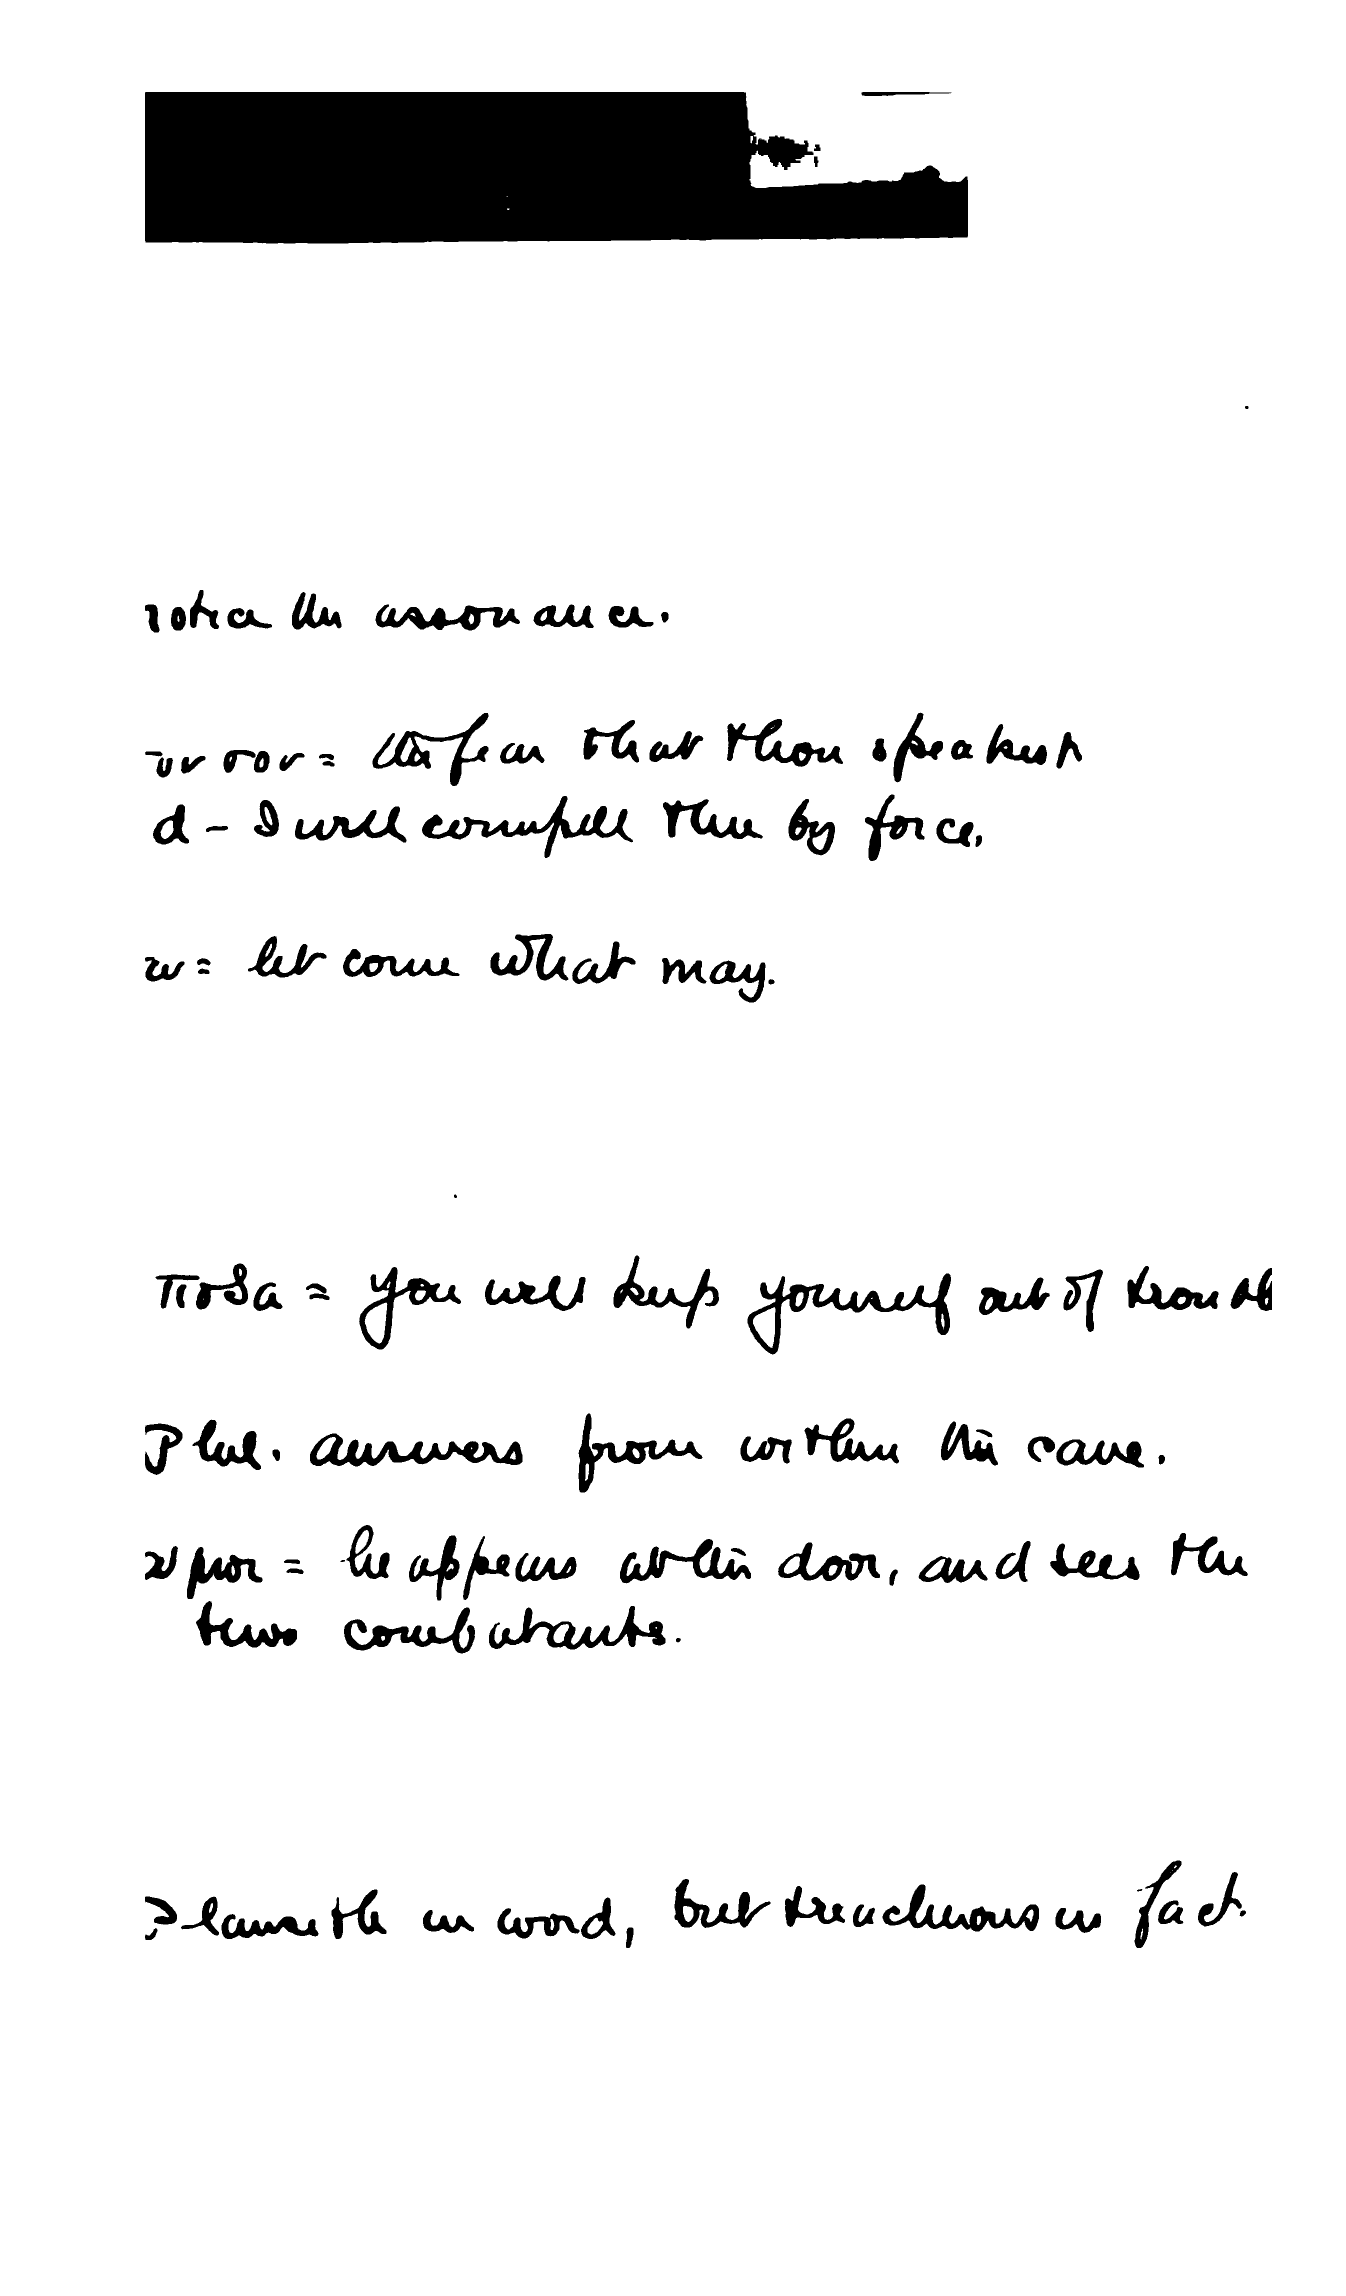 notice the assonance.
σον = the fear that thou speakest
d - I will compell thee by force.
= let come what may.
πόδα = you will keep yourself out of troubl
Phil. answers from within the cave.
μοι = he appears at the door, and sees the
two combatants.
Plausible in word, but treacherous in fact.